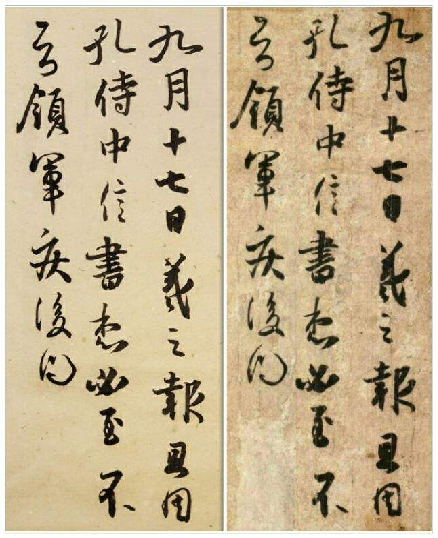 九月十七日羲之報且因
孔侍中信書想必至不
知領軍疾後問
九月十七日羲之報且因
孔侍中信書想必至不
知領軍疾後問